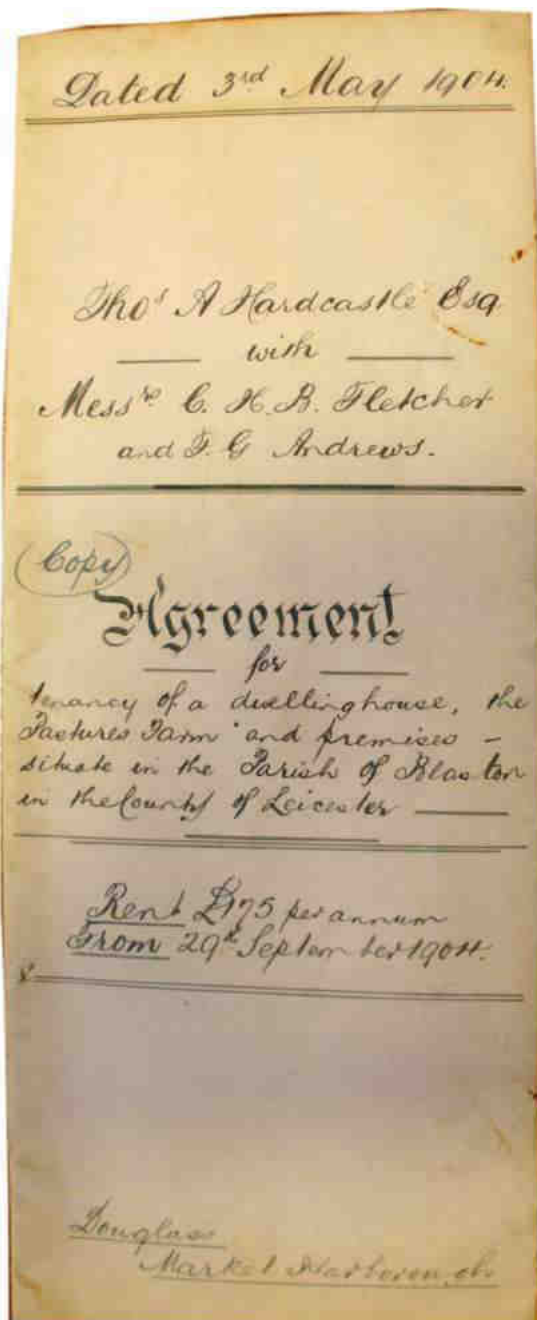 Dated 3rd May 1904.
Thos A Hardcastle Esq
with
Messrs C. H. B. Fletcher
and F. G Andrews.
(Copy)
Agreement
for
tenancy of a dwellinghouse, the
Pastures Farm and premises -
situate in the Parish of Blaston
in the County of Leicester
Rent £175 per annum
From 29th September 1904.
Douglass
Market Harborough